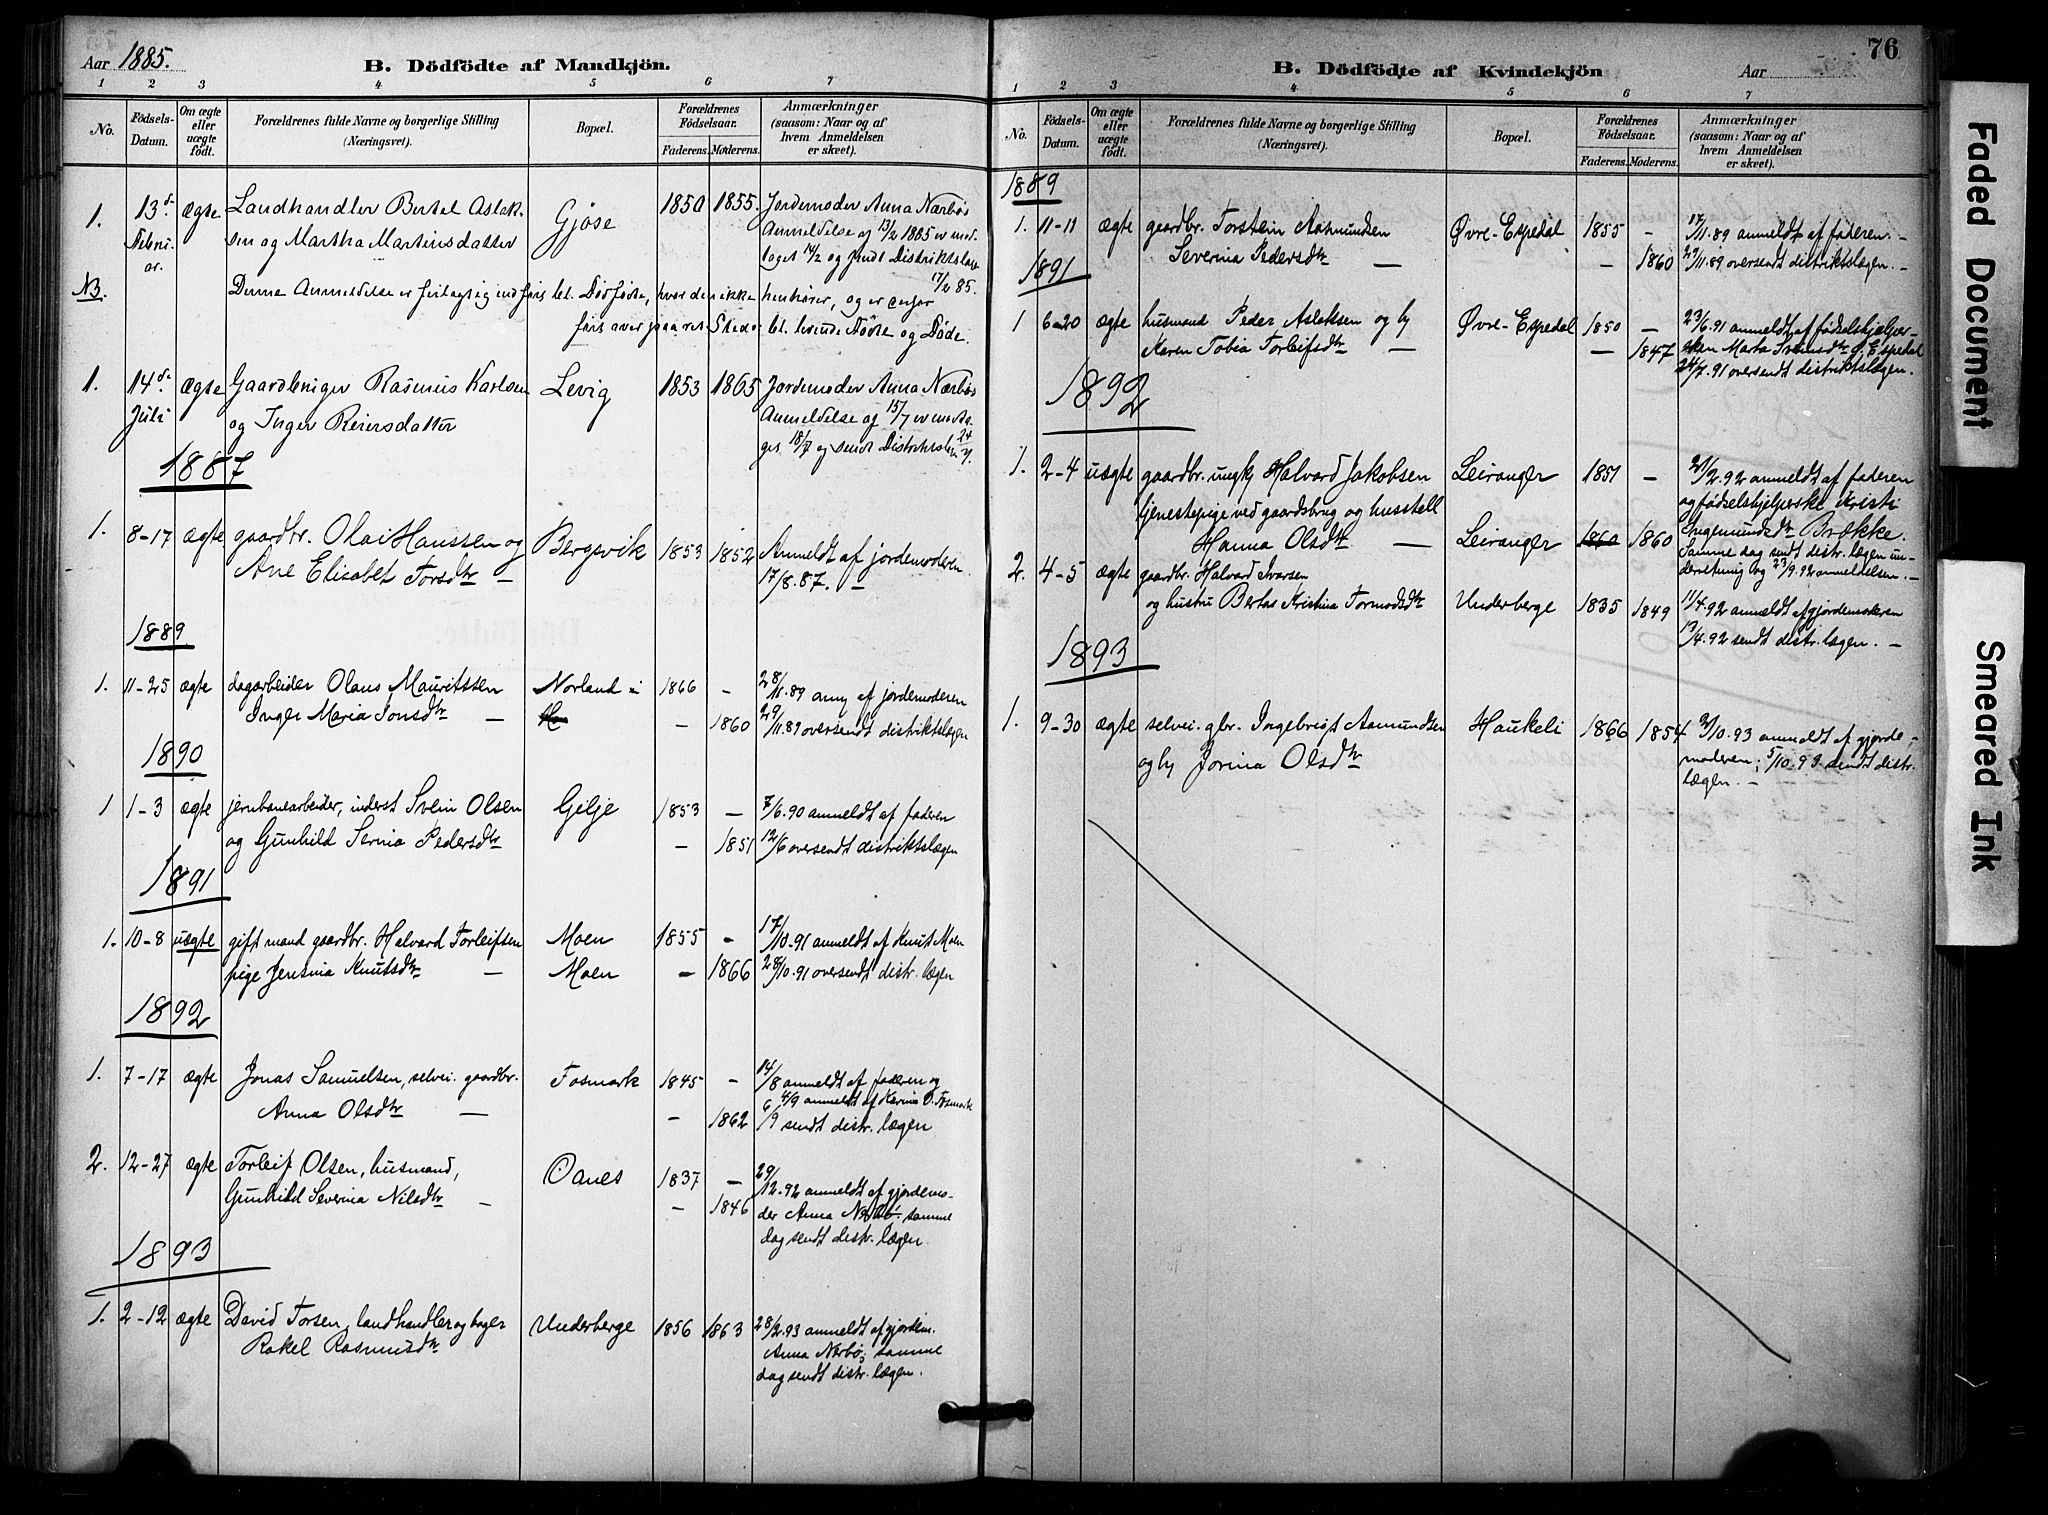 Aar 1885.
B. Dödfödte af Mandkjön.
1 2 3 4 5 6 7
No.
Födsels-Datum.
Om ægte eller uægte født.
Forældrenes fulde Navne og borgerlige Stilling (Næringsvei).
Bopæl.
Forældrenes Födselsaar.
Faderens. Moderens.
Anmærkninger (saasom: Naar og af hvem Anmeldelsen er skeet).
1. 13de Februar. ægte Landhandler Bertel Aslaksen og Martha Martinsdatter Gjöse 1850 1855. Jordemoder Anna Nærbös
Anmeldelse af 13/2 1885 er modtaget 14/2 og sendt Distriktslæ 17/2 85.
NB. Denne Anmeldelse er feilagtig indført bl. Dødfødte, hvor den ikke henhører, og er derfor
ført over paa ret Sted bl. levende Fødte og Døde.
1. 14de Juli ægte Gaardbruger Rasmus Karlsen og Inger Reiersdatter Levig 1853 1865 Jordemoder Anna Nærbös
Anmeldelse af 15/7 er modtaget 18/7 og sendt Distriktsl. 24/7.
1887
1. 8-17 ægte gaardbr. Olai Hanssen og
Ane Elisabet Torsdtr — Bergsvik 1853 1852 Anmeldt af jordemoderen
17/8.87. —
1889
1. 11-25 ægte dagarbeider Olaus Mauritssen Norland 1866 — 28/11.89 anm af jordemoderen
Inger Maria Jonsdtr — — 1860 29/11.89 oversendt distriktslægen
1890
1 1-3 ægte jernbanearbeider, inderst Svein Olsen Gilje 1853 — 7/6.90 anmeldt af faderen
og Gunhild Serina Pedersdtr — 1851 12/6 oversendt distriktslægen
1891
1. 10-8 uægte gift mand gaardbr. Halvard Torleifsen Moen 1855 — 17/10-91 anmeldt af Knut Moen
pige Jensina Knutsdtr — Moen — 1866 28/10.91 oversendt distr. lægen
1892
1. 7-17 ægte Jonas Samuelsen, selvei. gaardbr. Fosmark 1845 — 14/8 anmeldt af faderen og
4/9 anmeldt af Karina O. Fosmark
Anna Olsdtr — — 1862 6/9 sendt distr. lægen
2. 12-27 ægte Torleif Olsen, husmand, Oanes 1837 — 29/12.92 anmeldt af gjordemo-
Gunhild Severina Nilsdtr — — 1846 der Anna Nærbö. samme
dag sendt distr. lægen.
1893
1. 2-12 ægte David Torsen, landhandler og bager Underberge 1856 1863 28/2.93 anmeldt af gjordem.
Rakel Rasmusdtr Anna Nerbö; samme
dag sendt distr. lægen.
76
B. Dödfödte af Kvindekjön
Aar
1 2 3 4 5 6 7
No.
Födsels-Datum.
Om ægte eller uægte født.
Forældrenes fulde Navne og borgerlige Stilling (Næringsvei).
Bopæl.
Forældrenes Födselsaar.
Faderens. Moderens.
Anmærkninger (saasom: Naar og af hvem Anmeldelsen er skeet).
1889
1. 11-11 ægte gaardbr. Torstein Aasmundsen Øvre-Espedal 1855 — 17/11.89 anmeldt af faderen. —
Severina Pedersdtr — — 1860 29/11.89 oversendt distriktslægen. —
1891
1 6-20 ægte husmand Peder Aslaksen og h Øvre-Espedal 1850 — 23/6.91 anmeldt af födselshjælper-
Karen Tobia Torleifsdtr — — 1847 sken Marta Sveinsdtr Ø. Espedal
24/7.91 oversendt distriktslægen.
1892
1. 2-4 uægte gaardbr. ungk Halvard Jakobsen Leiranger 1851 — 21/2.92 anmeldt af faderen
tjenestepige ved gaardsbrug og husstell og fødselshjelperske Kristi
Hanna Olsdtr — Leiranger 1860 1860 Ingemundsdtr Brække.
Samme dag sendt distr. lægen un-
derretning og 23/9.92 anmeldelsen. —
2. 4-5 ægte gaardbr. Halvard Ivarsen
og hustru Berta Kristina Tormodsdtr Underberge 1835 1849 11/4.92 anmeldt af gjordemoderen
13/4.92 sendt distr. lægen. —
1893
1. 9-30 ægte selvei. gbr. Ingebregt Aamundsen Haukeli 1866 1854 2/10.93 anmeldt af gjorde-
og h Jorina Olsdtr moderen; 5/10.93 sendt distr.
lægen. —
Faded Document
Smeared Ink